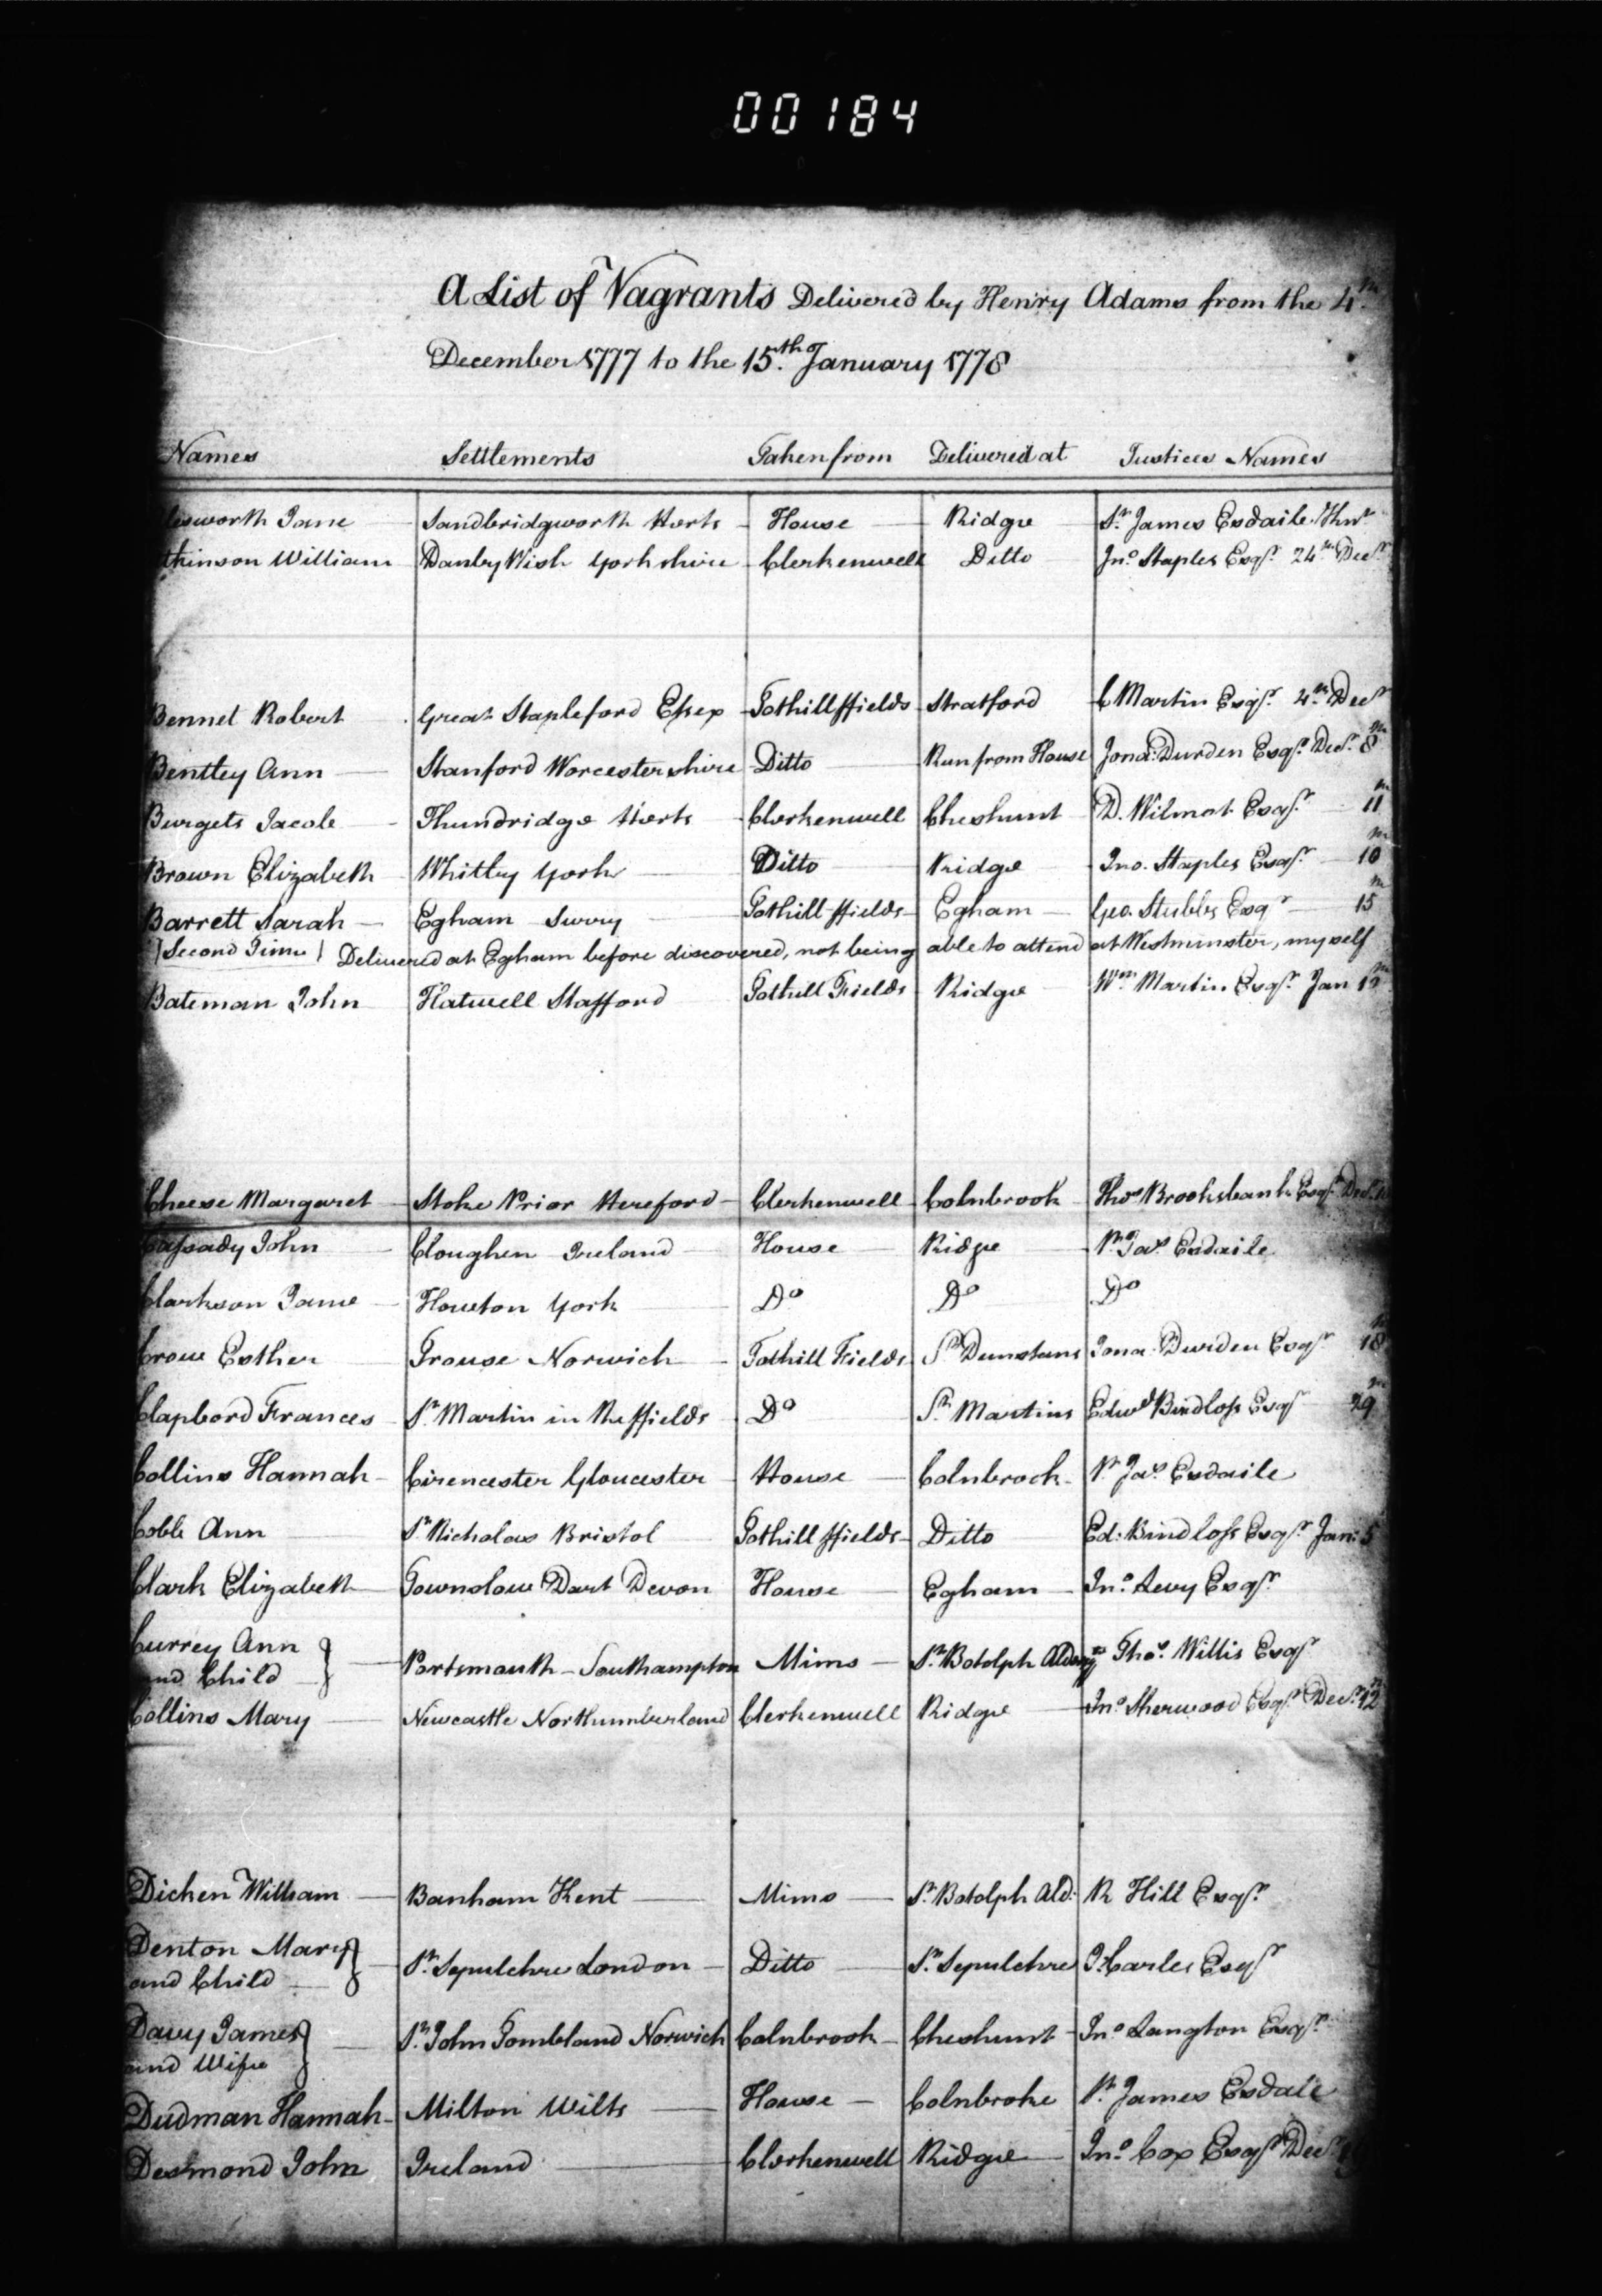 00184
A List of Vagrants Delivered by Henry Adams from the 4th
December 1777 to the 15th January 1778
Names Settlements Taken from Delivered at Justices Names
Jane Sandbridgworth Herts House Ridge Sr. James Esdaile Knt
tkinson William Danby Wish Yorkshire Clerkenwell Ditto Jno. Staples Esqr. 24th Decr
Bennet Robert Great Stapleford Essex Tothill ffields Stratford C Martin Esqr. 4th Decr
Bentley Ann Stanford Worcestershire Ditto Run from House Jona: Durden Esqr. Decr. 8th
Burgets Jacob Thundridge Herts Clerkenwell Cheshunt D. Wilmot Esqr. 11th
Brown Elizabeth Whitby York Ditto Ridge Jno. Staples Esqr. 10th
Barrett Sarah Egham Surry Tothill ffields Egham Geo. Stubbs Esqr 15th
(Second Time) Delivered at Egham before discovered, not being able to attend at Westminster, myself
Bateman John Hatwell Stafford Tothill Fields Ridge Wm. Martin Esqr. Jan 12th
Cheese Margaret Stoke Prior Hereford Clerkenwell Colnbrook Thos Brooksbank Esqr. Decr.
Cassady John Cloughen Ireland House Ridge Sr. Jas. Esdaile
Clarkson Jane Howton York Do Do Do
Crow Esther Trouse Norwich Tothill Fields St. Dunstans Jona. Durden Esqr 18th
Clapbord Frances St. Martin in the ffields Do St. Martins Edwd Bindloss Esqr 29th
Collins Hannah Cirencester Gloucester House Colnbrook Sr Jas. Esdaile
Coble Ann St. Nicholas Bristol Tothill ffields Ditto Ed: Bindloss Esqr. Jan: 5
Clark Elizabeth Townslow Dart Devon House Egham Jno. Levy Esqr.
Currey Ann
and Child } Portsmouth Southampton Mims St. Botolph Thos. Willis Esqr
Collins Mary Newcastle Northumberland Clerkenwell Ridge Jno. Sherwood Esqr. Decr. 12th
Dicken William Banham Kent Mims St. Botolph Ald: R Hill Esqr.
Denton Mary
and Child } St. Sepulchre London Ditto St. Sepulchre T. Carles Esqr
Davy James
and Wife } St. John Tombland Norwich Colnbrook Cheshunt Jno. Langton Esqr.
Dudman Hannah Milton Wilts House Colnbroke Sr. James Esdale
Desmond John Ireland Clerkenwell Ridge Jno. Cox Esqr. Decr.